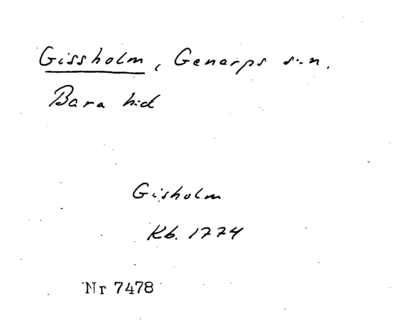 Gissholm, Genarps s:n.
Bara h:d
Gisholm
Kb. 1774
Nr 7478